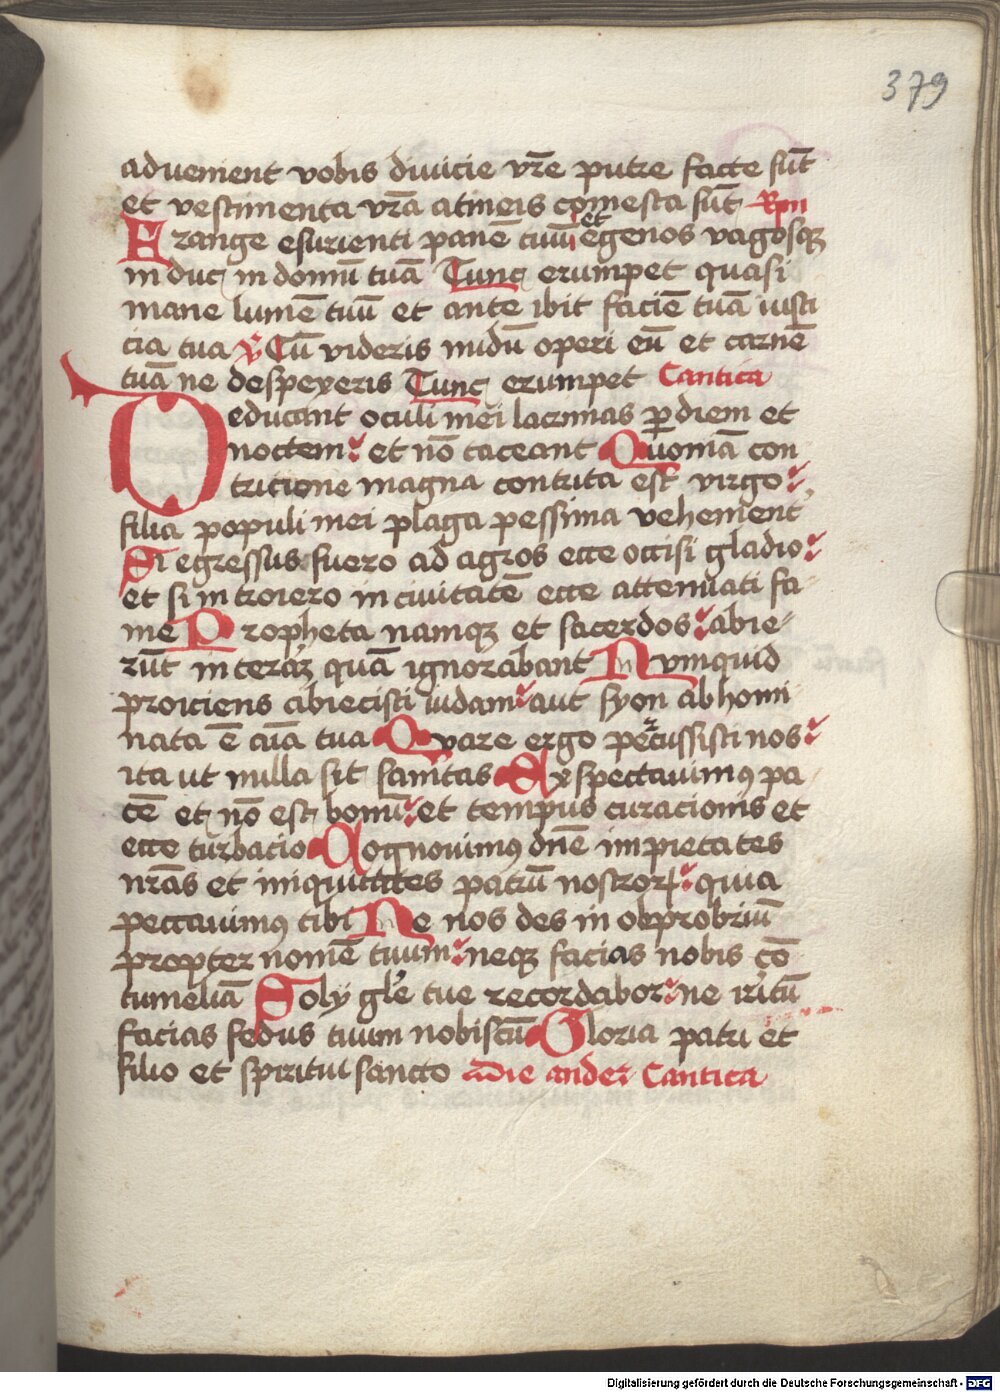 379
aduenient vobis diuicie vr̄e putre facte sūt
et vestimenta vrā a tineis comesta sūt Rpm
Frange esurienti panē tuū et egenos vagosqꝫ
in duc in domū tuā Tunc erumpet quasi
mane lumē tuū et ante ibit faciē tuā iusti
cia tua ℣ Cū videris nudū operi eū et carnē
tuā ne despexeris Tunc erumpet Cantica
Deducant oculi mei lacrimas ꝑ diem et
noctem et nō taceant Quoniā con
tricione magna contrita est virgo
filia populi mei plaga pessima vehement᾽
Si egressus fuero ad agros ecce occisi gladio
et si in troiero in ciuitatē ecce attenuati fa
me Propheta namqꝫ et sacerdos abie-
rūt in terāꝫ quā ignorabant Nunquid
proiciens abiecisti iudam aut syon abhomi
nata ē aīa tua Quare ergo percussisti nos
ita ut nulla sit sanitas Expectauimꝯ pa
cē et nō est bonū et tempus curacionis et
ecce turbacio Cognouimꝯ dn̄e impietates
nr̄as et iniquitates patrū nostroꝝ quia
peccauimꝯ tibi Ne nos des in obprobriū
propter nomē tuum neqꝫ facias nobis cō
tumeliā Soly gle᾽ tue recordabor ne irītū
facias fedus tuum nobiscū Gloria patri et
filio et spiritui sancto Die ander Cantica
Digitalisierung gefördert durch die Deutsche Forschungsgemeinschaft - DFG